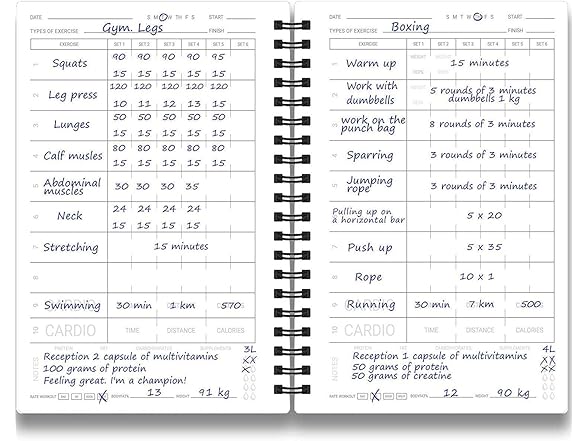 DATE S M T W T H F S START
TYPES OF EXERCISE Gym. Legs FINISH
EXERCISE SET 1 SET 2 SET 3 SET 4 SET 5 SET 6
1 Squats 90 90 90 90 95
15 15 15 15 15
2 Leg press 120 120 120 120 120
10 11 12 13 15
3 Lunges 50 50 50 50 50
15 15 15 15 15
4 Calf musles 80 80 80 80 80
15 15 15 15 15
5 Abdominal
muscles 30 30 30 35
6 Neck 24 24 24 24
15 15 15 15
7 Stretching 15 minutes
8
9 Swimming 30 min 1 km 570
10 CARDIO TIME DISTANCE CALORIES
PROTEIN FAT CARBOHYDRATES SUPPLEMENTS 3L
NOTES Reception 2 capsule of multivitamins XX
100 grams of protein X
Feeling great. I'm a champion!
RATE WORKOUT BAD X BODYFAT% 13 WEIGHT 91 kg
DATE S M T W T H F S START
TYPES OF EXERCISE Boxing FINISH
EXERCISE SET 1 SET 2 SET 3 SET 4 SET 5 SET 6
1 Warm up WEIGHT 15 minutes
REPS
2 Work with
dumbbells 5 rounds of 3 minutes
dumbbells 1 kg
3 work on the
punch bag 8 rounds of 3 minutes
4 Sparring 3 rounds of 3 minutes
5 Jumping
rope 3 rounds of 3 minutes
6 Pulling up on
a horizontal bar 5 x 20
7 Push up 5 x 35
8 Rope 10 x 1
9 Running 30 min 7 km 500
10 CARDIO TIME DISTANCE CALORIES
PROTEIN FAT CARBOHYDRATES SUPPLEMENTS 4L
NOTES Reception 1 capsule of multivitamins XX
50 grams of protein XX
50 grams of creatine
RATE WORKOUT BAD X BODYFAT% 12 WEIGHT 90 kg